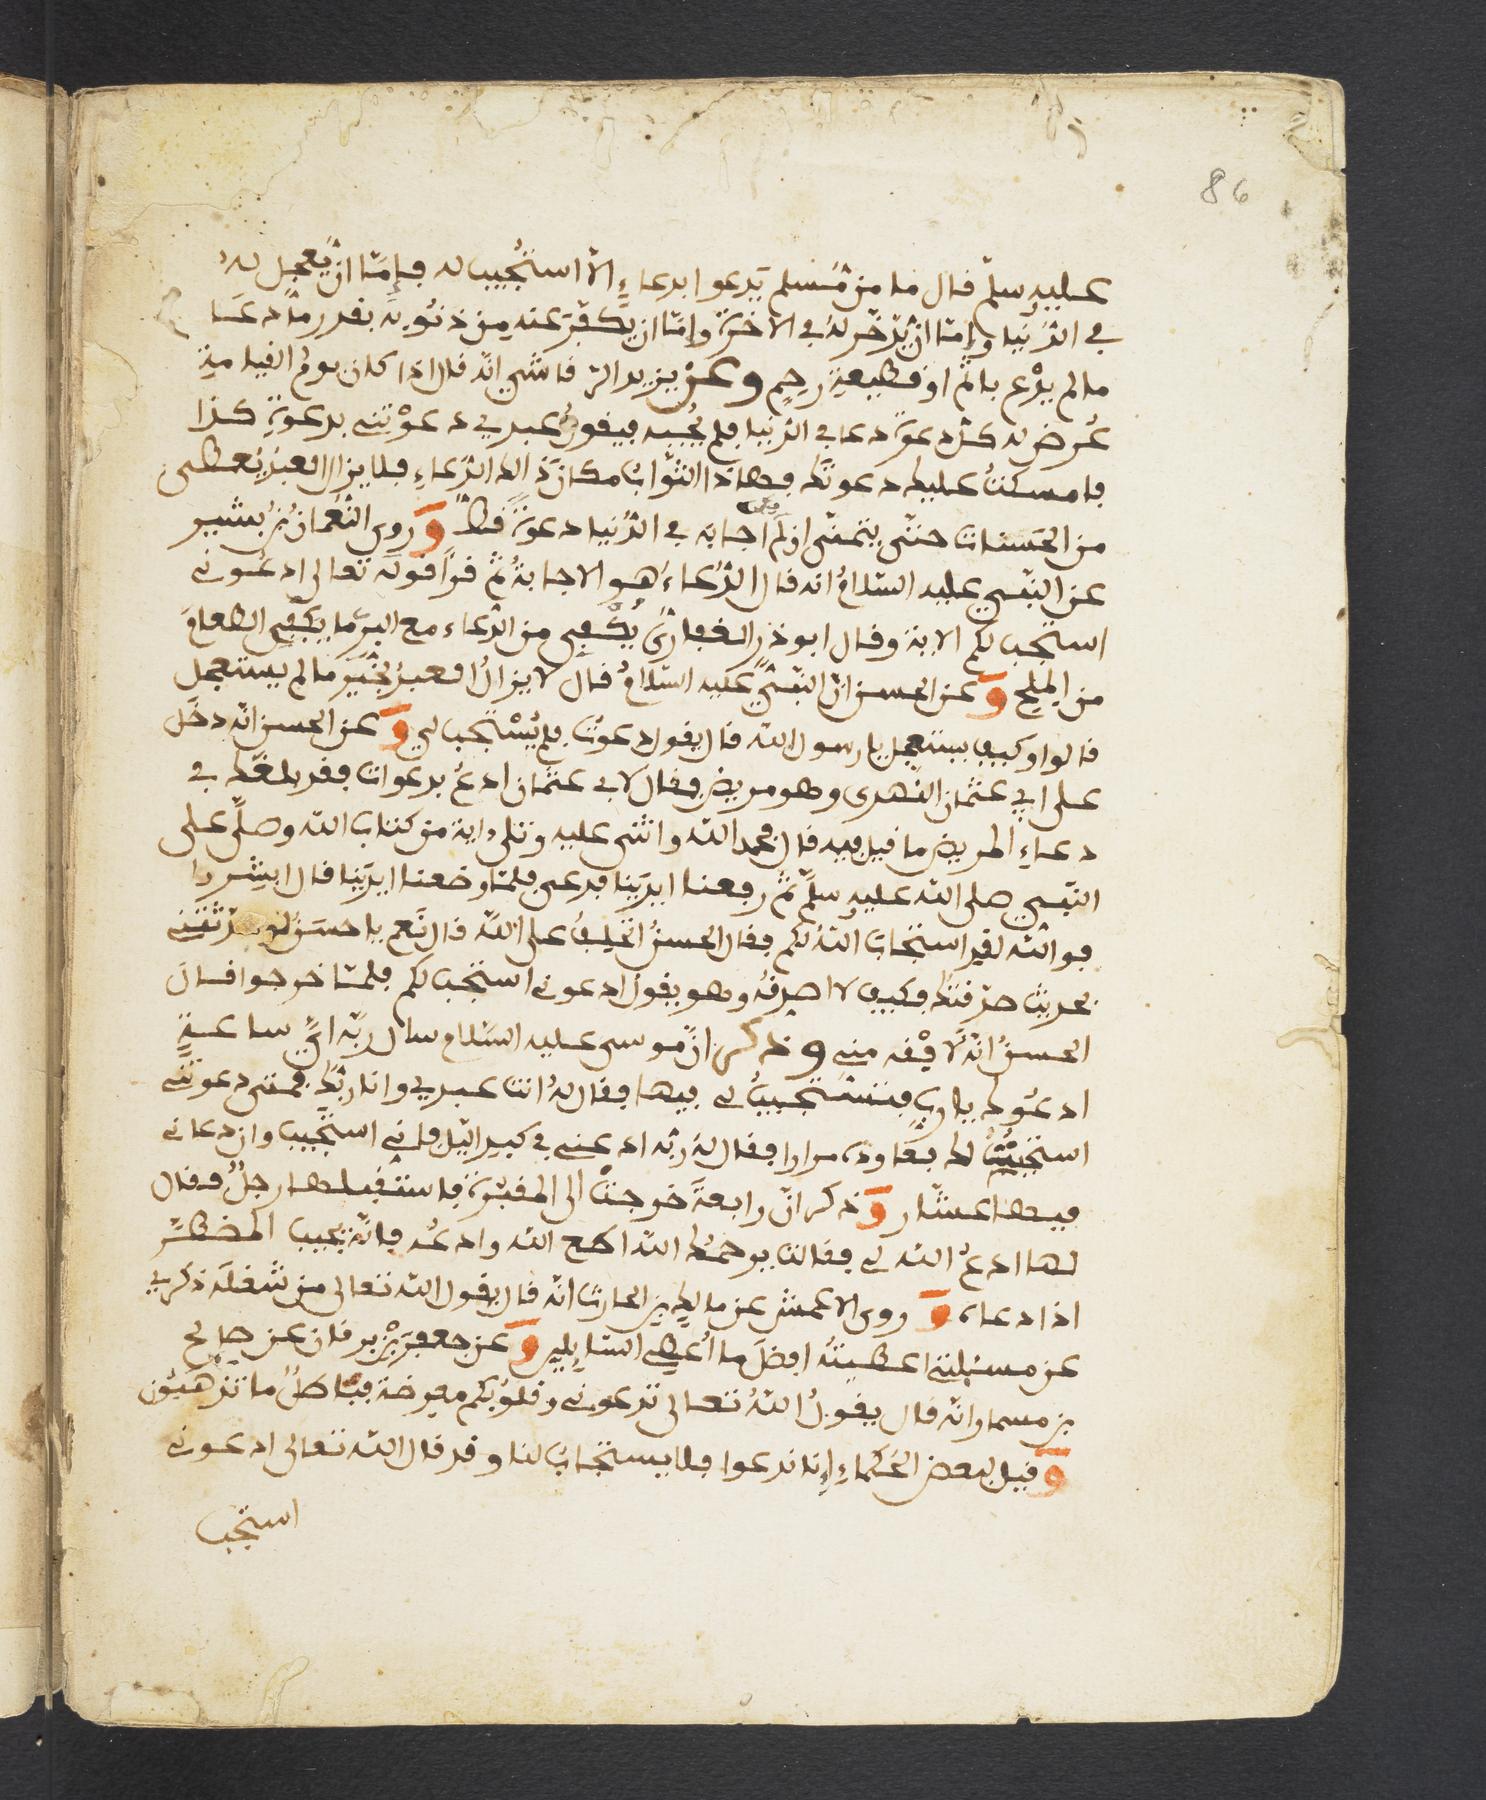 86
عليه وسلم قال ما من مُسلم يَدعوا بدعاءٍ الّا استُجيب له فإمّا ان يُعجل لهُ
في الدُنيا وإمّا ان يُدّخر لهُ في الاخرة وإمّا ان يُكفّرَ عنه مِن ذنُوبه بقدر ما دعَا
ما لم يدْع باثم او قطيعةِ رحِم وعن يزيد الرقاشي انّه قال اذا كان يومُ القيامةِ
عُرض له كلّ دعوةٍ دعا في الدنيا فلم يُجبه فيقولُ عبدي دعوْتني بدعوةِ كذا
فامسكتُ عليك دعوتك فهاذا الثوابُ مكانَ ذالك الدّعاءِ فلا يزال العبدُ يُعطى
من الحَسنات حتّى يتمنّى ان لم اجابه في الدُنيا دعوةً قطّ وَ روى النُعمانُ بنُ بشير
عن النّبي عليه السّلامُ انه قال الدُعاءُ هو الاجابةُ ثمّ قرأ قوله تعالى ادعُوني
استجب لكم الاية وقال ابو ذر الغفاريُّ يُكْفِي من الدُعاء مع البِرّ ما يَكفي الطعامَ
من الملح وَ عن الحسن انّ النبيَّ عليه السّلامُ قال لا يزالُ العبدُ بخَيرَ ما لم يستعجل
قالوا وكيف يستعجل يا رسول الله قال يقول دعوتُ فلم يُسْتَجب لي وَ عن الحسن انّه دخل
على ابي عثمان النّهدى وهو مريض فقال لابي عثمان ادعُ بدعوات فقد بلغك في
دعاءِ المريض ما قيل فيه قال فحمد الله واثنى عليه وتلى ءاية من كتاب الله وصلّى على
النّبي صلى الله عليه وسلم ثمّ رفعنا ايديَنا فدعى فلمّا وضعنا ايديَنا قال ابشِروا
فو الله لقد استجابَ اللهُ لكم فقال الحسنُ اتحلِفُ على اللهّ قال نَعم يا حسَنُ لو حدّثتني
بحديث صدّقتك فكيف لا اصدقهُ وهو يقول ادعوني استجب لكم فلمّا خرجوا قال
الحسنُ انّه لافْقه مني وذكر انّ موسى عليه السّلام سأل ربّه ايّ ساعةٍ
ادعُوك يا ربِ فتستجيبُ لي فيها فقال لهُ انت عبدي وانا ربُّك فمتى دعوتني
استجبتُ لك فعاودَه مرارا فقال لهُ ربّه ادعني في كبد اللّيل فاني استجيب وان دعاني
فيها عشّار وَ ذكر انّ رابعةَ خرجت الى المقبرة فاستقبلها رجلٌ فقال
لها ادعُ الله لي فقالت يرحمُك الله اطع الله وادعُه فانّه يجيب المضطرّ
اذا دعاه وَ روى الاعمش عن مالك بن الحارث انّه قال يقول الله تعالى من شغلهُ ذكري
عن مسئلتي اعطيتُه افضلَ ما اُعطي السّايلين وَ عن جعفر بْن برقان عن صالح
بن مسمار انّه قال يقولُ اللهُ تعالى تدعونني وقلوُبكم معرضة فباطلٌ ما ترهبُون
وَقيل لبعض الحُكماءِ إنا ندعوا فلا يستجابُ لنا وقد قال الله تعالى ادعوني
استجب